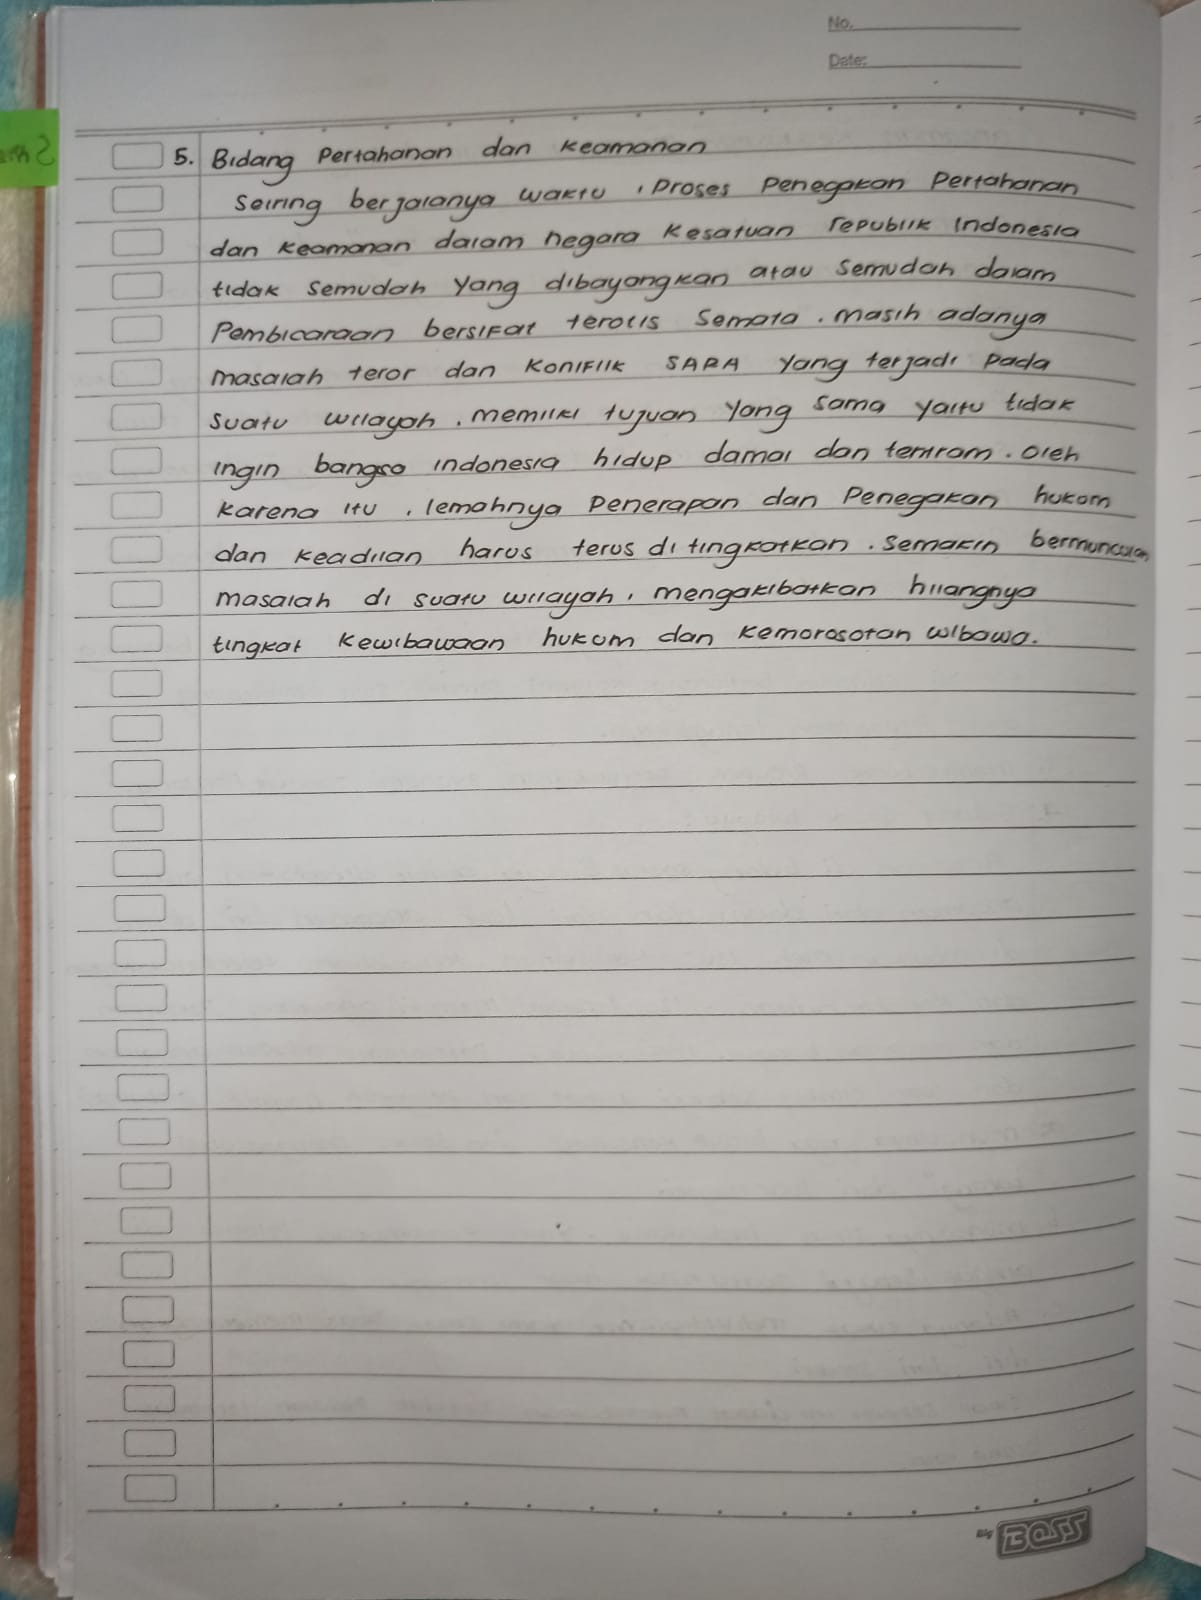 No.
Date:
5. Bidang Pertahanan dan Keamanan
Seiring berjalanya waktu, Proses Penegakan Pertahanan
dan Keamanan dalam negara Kesatuan republik Indonesia
tidak semudah yang dibayangkan atau semudah dalam
Pembicaraan bersifat terotis semata. Masih adanya
masalah teror dan Koniflik SARA yang terjadi pada
suatu wilayah. memiliki tujuan yang sama yaitu tidak
ingin bangsa indonesia hidup damai dan tentram. Oleh
karena itu, lemahnya Penerapan dan Penegakan hukum
dan keadilan harus terus di tingkatkan. Semakin bermunculan
masalah di suatu wilayah, mengakibatkan hilangnya
tingkat Kewibawaan hukum dan Kemorosotan wibawa.
Big BOSS